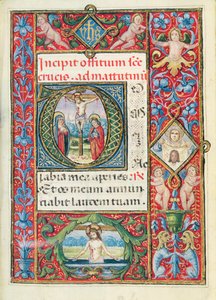 yhs
Incipit offitium sc̄e
crucis. ad matutinū
D
labia mea aperies
Et os meum annun
ciabit laudem tuam.